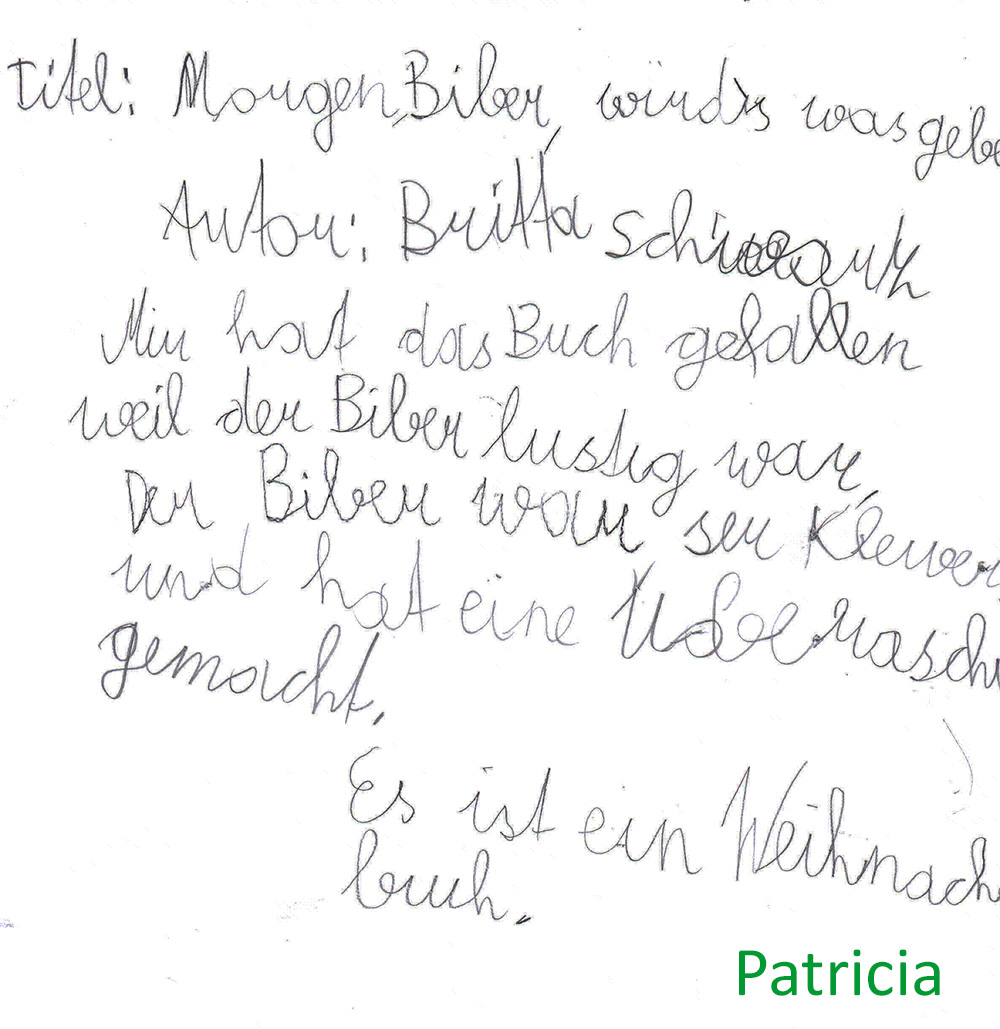 Titel: Morgen, Biber, wird's was gebe
Autor: Britta Schwarz
Mir hat das Buch gefallen
weil der Biber lustig war,
Der Biber war ser Klewer
und hat eine Überraschu
gemacht.
Es ist ein Weihnach
buch.
Patricia